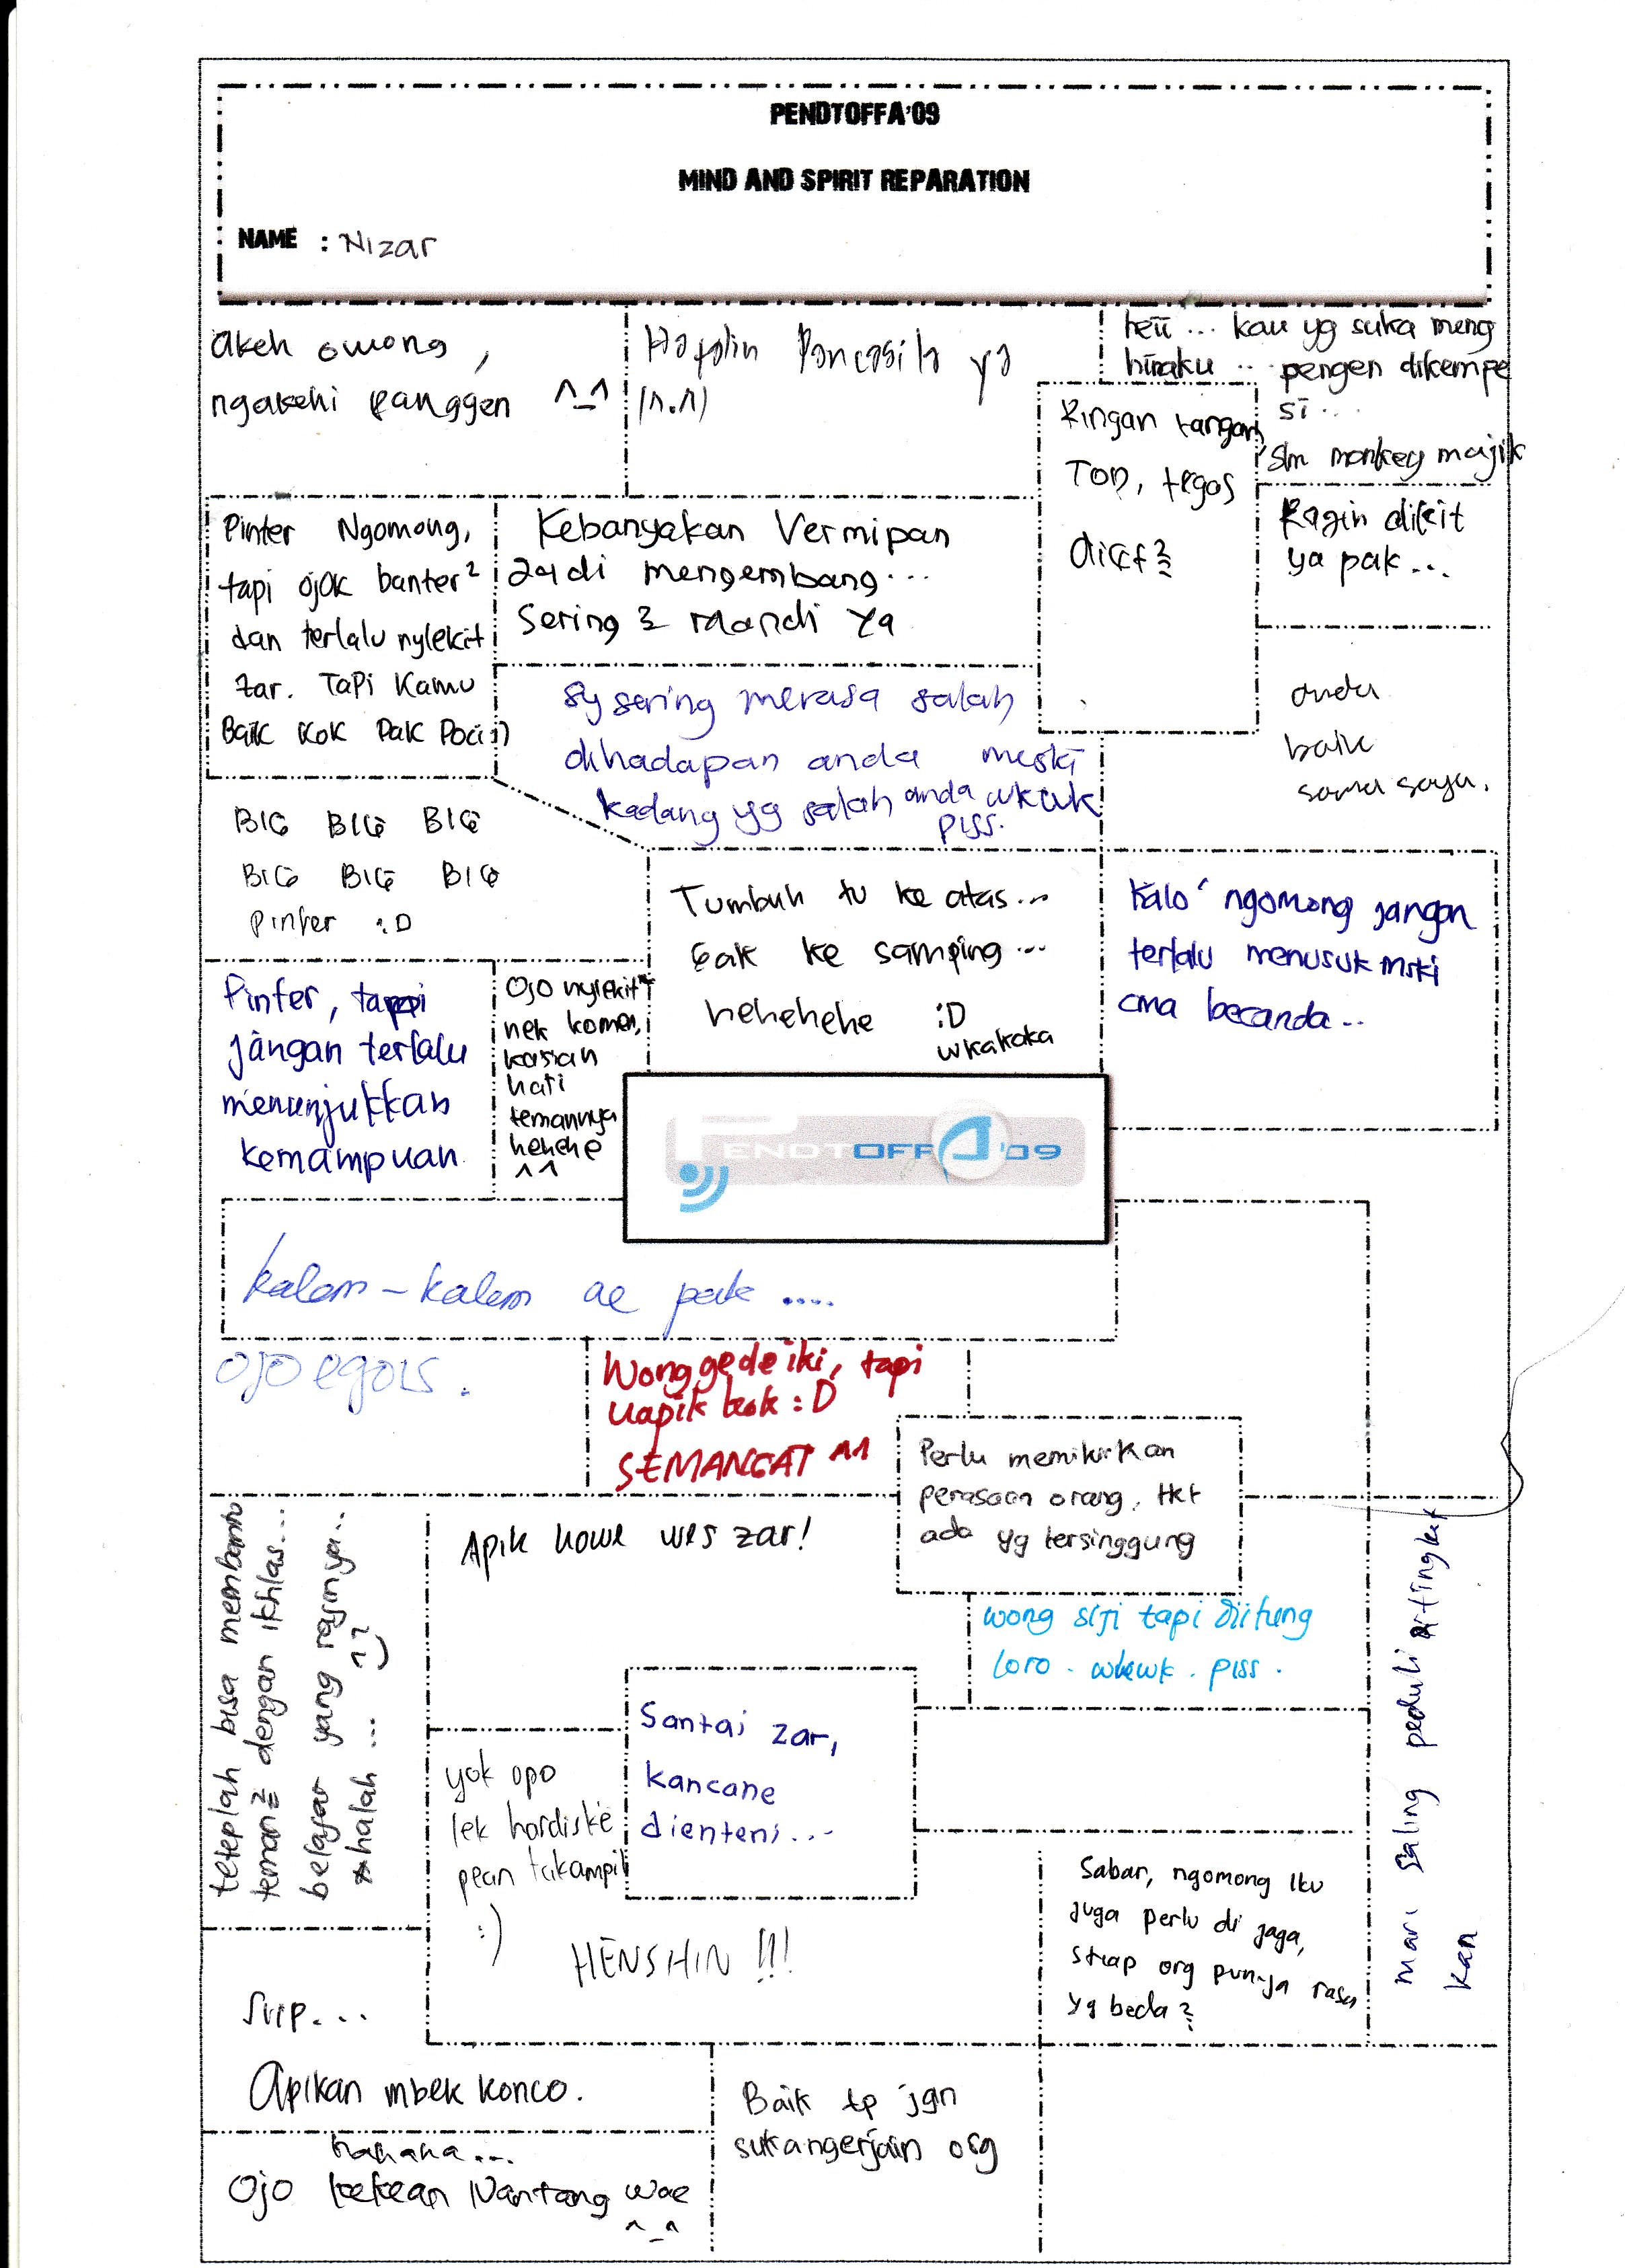 PENDTOFFA'09
MIND AND SPIRIT REPARATION
NAME : Nizar
akeh omong,
ngakehi panggen ^_^
Hafalin Pancasila ya
(^.^)
heii ... kau yg suka meng
hinaku ... pengen dikempe
si ...
slm monkey majik
Ringan tangan
TOP, tegas
dikit2
Ragin dikit
ya pak...
Pinter Ngomong,
tapi ojok banter2
dan terlalu nylekit
zar. TaPi Kamu
Baik Kok Pak Poci :)
Kebanyakan Vermipan
dadi mengembang...
Sering2 mandi Ya
Sy sering merasa salah
dihadapan anda meski
kadang yg salah anda wkwk
piss.
anda
baik
sama saya.
BIG BIG BIG
BIG BIG BIG
Pinter :D
Tumbuh tu ke atas...
Gak ke samping...
hehehehe :D
wkakaka
Kalo' ngomong jangan
terlalu menusuk mski
cma becanda...
Pinter, tapi
jangan terlalu
menunjukkan
kemampuan
Ojo nylekit"
nek komen,
kasian
hati
temannya
hehehe
^^
PENDTOFFA'09
kalem-kalem ae pak ....
Ojo egois.
Wong gede iki, tapi
uapik kok :D
SEMANGAT ^^
Perlu memikirkan
perasaan orang, tkt
ada yg tersinggung
teteplah bisa membantu
teman2 dengan ikhlas...
belajar yang rajinya...
*halah...
Apik kowe wes zar!
wong siji tapi diitung
loro. wkwk. piss.
mari saling peduli
kan
Santai zar,
kancane
dienteni...
yok opo
lek hardiske
pean takampil
:)
HENSHIN !!!
Sabar, ngomong Iku
Juga perlu di jaga,
stiap org punya rasa
yg beda2
Siip...
Apikan mbek konco.
hahaha...
Ojo kekean Nantang wae
^_^
Baik tp jgn
suka ngerjain org